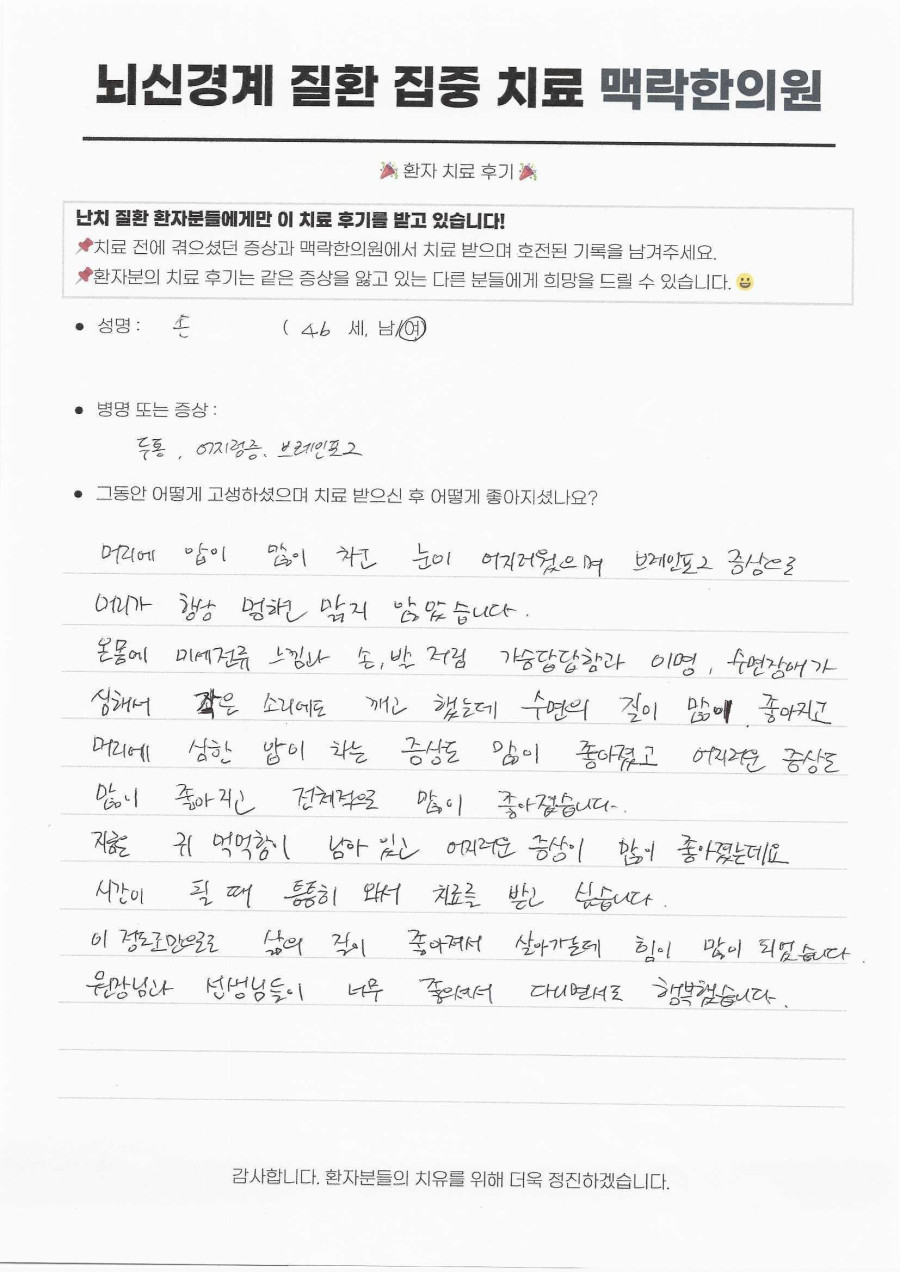 뇌신경계 질환 집중 치료 맥락한의원
🎉 환자 치료 후기 🎉
난치 질환 환자분들에게만 이 치료 후기를 받고 있습니다!
📌치료 전에 겪으셨던 증상과 맥락한의원에서 치료 받으며 호전된 기록을 남겨주세요.
📌환자분의 치료 후기는 같은 증상을 앓고 있는 다른 분들에게 희망을 드릴 수 있습니다. 😀
● 성명 : 손 ( 46 세, 남/여)
● 병명 또는 증상 :
두통, 어지럼증. 브레인포그
● 그동안 어떻게 고생하셨으며 치료 받으신 후 어떻게 좋아지셨나요?
머리에 압이 많이 차고 눈이 어지러웠으며 브레인포그 증상으로
머리가 항상 멍하면 맑지 않았습니다.
온몸에 미세전류 느낌과 손, 발 저림 가슴답답함과 이명, 수면장애가
심해서 작은 소리에도 깨고 했는데 수면의 질이 많이 좋아지고
머리에 심한 압이 차는 증상도 많이 좋아졌고 어지러운 증상도
많이 좋아지고 전체적으로 많이 좋아졌습니다.
지금은 귀 먹먹함이 남아 있고 어지러운 증상이 많이 좋아졌는데요
시간이 될 때 틈틈히 와서 치료를 받고 싶습니다.
이 정도로만으로도 삶의 질이 좋아져서 살아가는데 힘이 많이 되었습니다.
원장님과 선생님들이 너무 좋으셔서 다니면서도 행복했습니다.
감사합니다. 환자분들의 치유를 위해 더욱 정진하겠습니다.